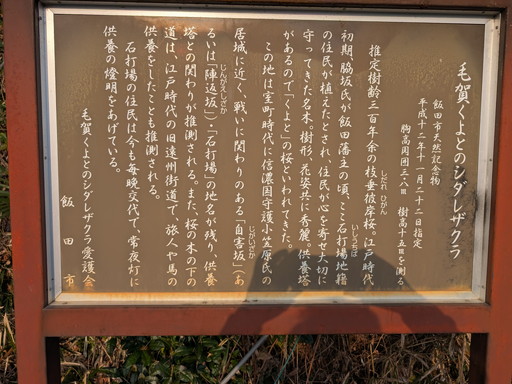 毛賀くよとのシダレザクラ
飯田市天然記念物
平成十二年十一月二十二日指定
胸高周囲三八㍍ 樹高十五㍍を測る
推定樹齢三百年余の枝垂彼岸桜。江戸時代
しだれ ひがん
初期、脇坂氏が飯田藩主の頃、ここ石打場地籍
いしうちば
の住民が植えたとされ、住民が心を寄せ大切に
守ってきた名木。樹形、花姿共に秀麗。供養塔
があるので「くよと」の桜といわれてきた。
この地は室町時代に信濃国守護小笠原氏の
居城に近く、戦いに関わりのある「自害坂」(あ
じがいざか
るいは「陣返坂」)「石打場」の地名が残り、供養
じんがえしざか
塔との関わりが推測される。また、桜の木の下の
道は、江戸時代の旧遠州街道で、旅人や馬の
供養をしたことも推測される。
石打場の住民は今も毎晩交代で、常夜灯に
供養の燈明をあげている。
毛賀くよとのシダレザクラ愛護会
飯田市